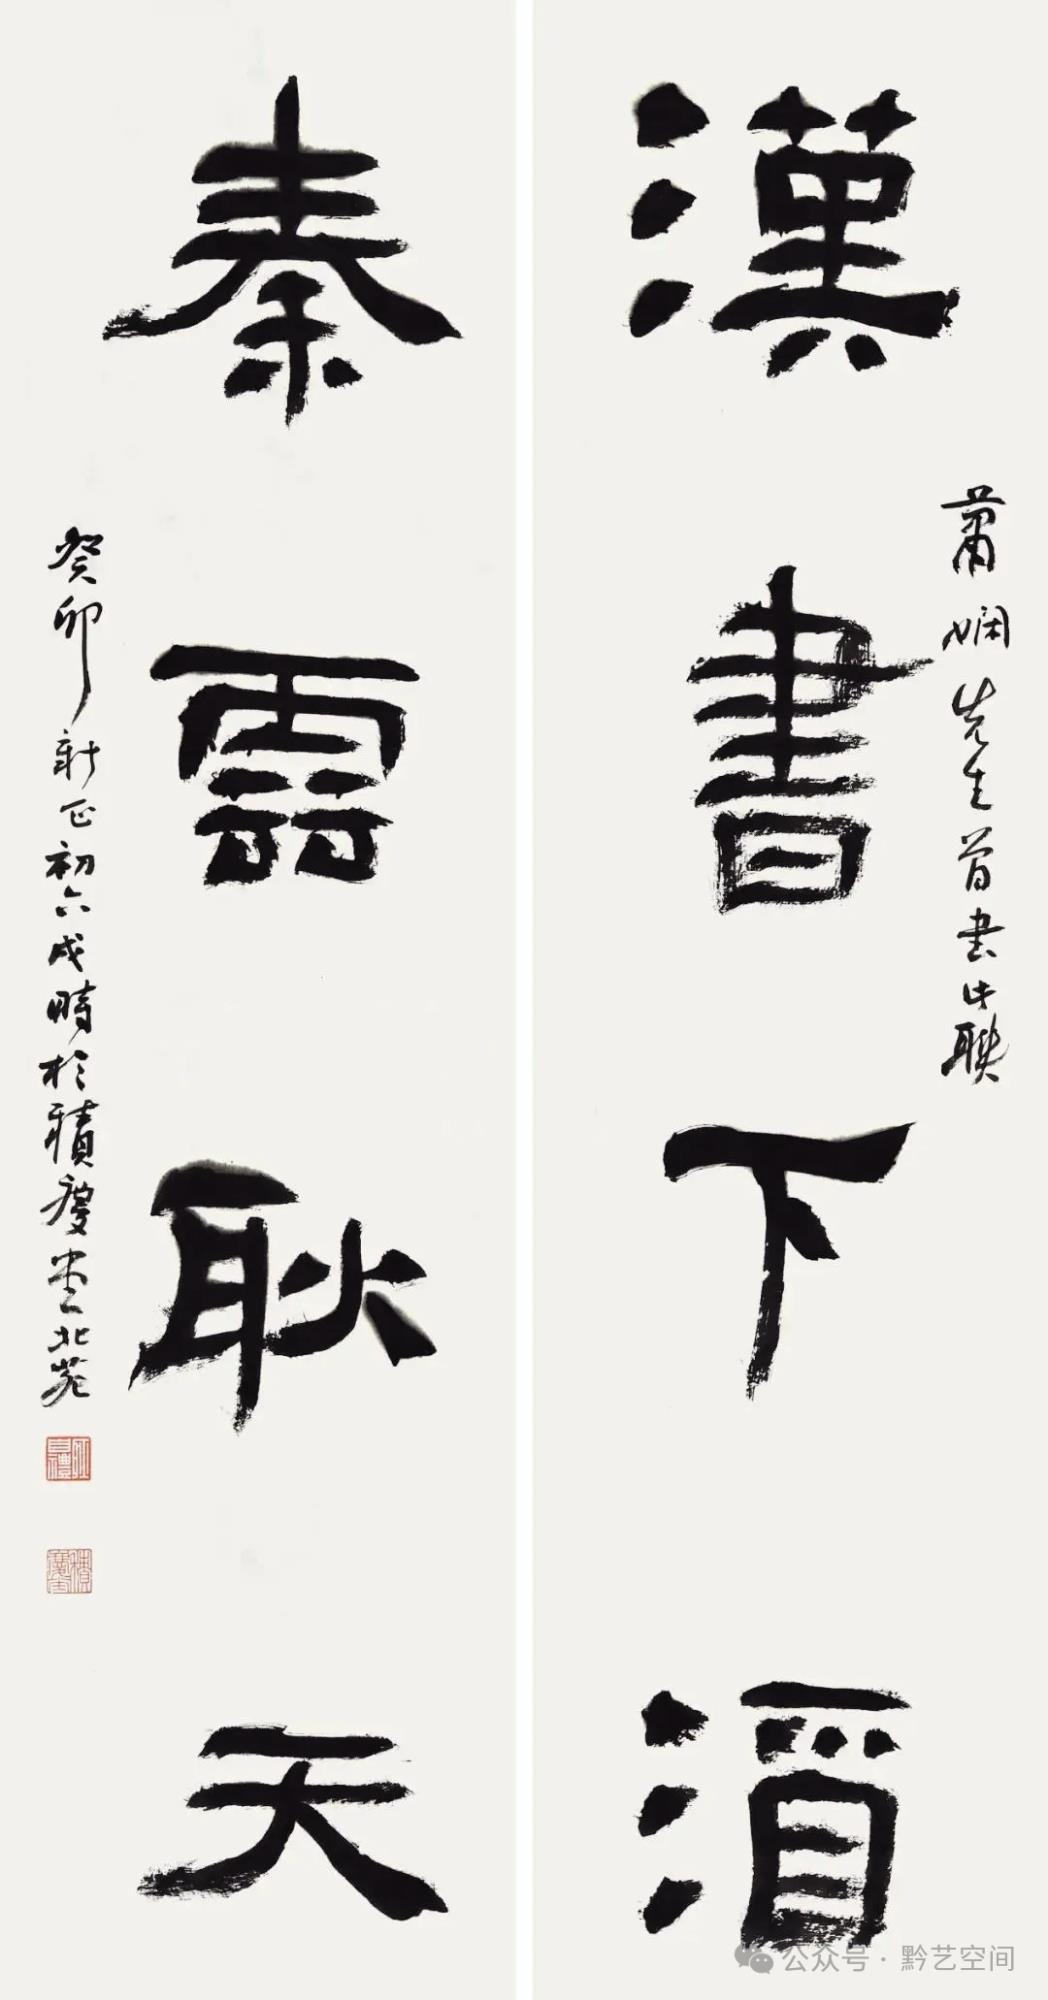 漢書下酒
蕭嫻先生曾書此聯
秦雲耿天
癸卯新正初六戌時於積慶堂北苑
公众号 · 黔艺空间